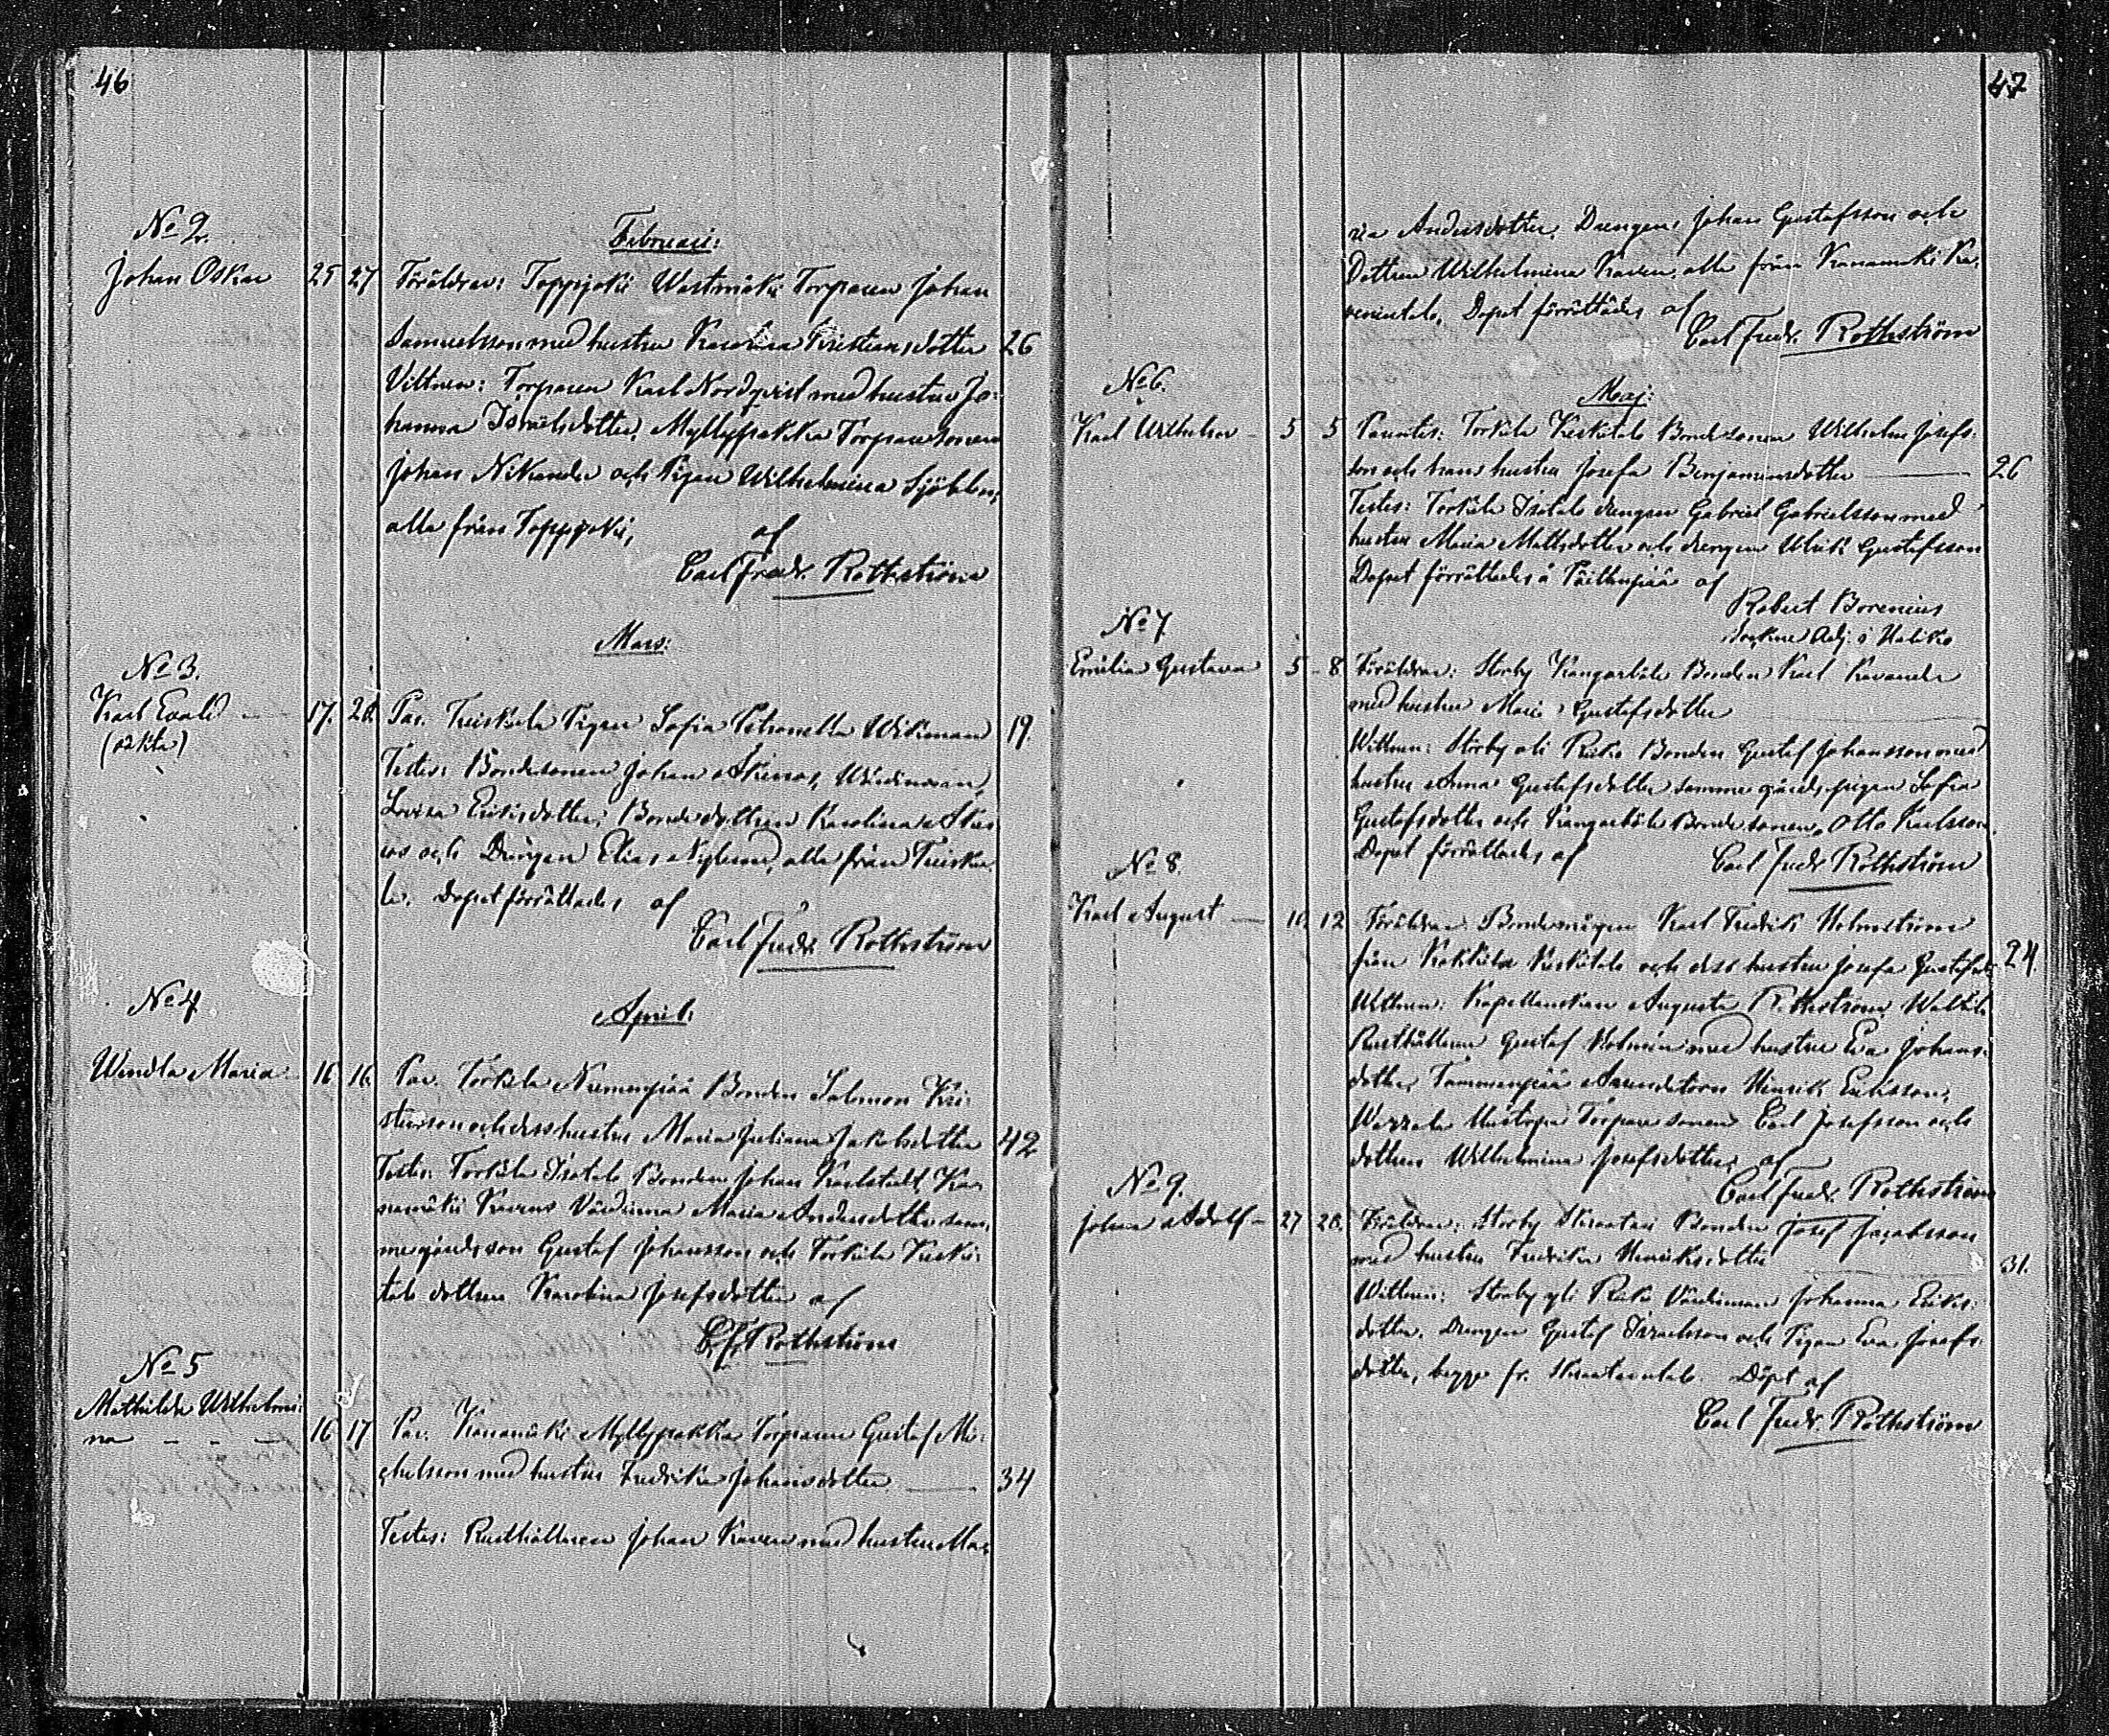 46
No 2.
Februari:
Johan Oskar 25 27 Föräldrar: Toppjoki Westmäki Torparen Johan
Samuelsson med hustru Karolina Kristiansdotter 26
Vittnen: Torparen Karl Nordqvist med hustru Jo-
hanna Israelsdotter, Myllypakka Torparesonen
Johan Nikander och Pigan Wilhelmina Sjöblom,
alla från Toppjoki, af
Carl Fredr. Rothström
Mars:
No 3.
Karl Evald 17. 20. Par. Pigan Sofia Petronella Wikman 19.
(oäkta)
Testes: Bondesonen Johan Skinnas, Wärdinnan
Lovisa Eriksdotter, Bondedottren Karolina
och Drengen Elias Nylund, alla från
la. Dopet förrättades af
Carl Fredr. Rothström
No 4
April:
Wendla Maria 16 16. Par. Torkila Niemenpää Bonden Salomon Kri-
stersson och dess hustru Maria Juliana Jakobsdotter 42
Testes: Torkila Isotalo Bonden Johan Karlstedt, Ka-
namäki Kavens Värdinna Maria Andersdotter sam-
me gårds son Gustaf Johansson och Torkila Keski-
talo dottren Karolina Josefsdotter af
C. F. Rothström
No 5
Mathilda Wilhelmi-
na - - - 16 17 Par. Kanamäki Myllypakka Torparen Gustaf Mi-
chelsson med hustru Fredrika Johansdotter 34
Testes: Rusthållaren Johan Kaven med hustru Ma-
47
ria Andersdotter, Drengen Johan Gustafsson och
Dottren Wilhelmina Kaven, alla från Kanamäki Ka-
venintalo. Dopet förrättades af
Carl Fredr. Rothström
No 6.
Maj:
Karl Wilhelm - 5 5 Parentes: Torkila Keskitalo Bondesonen Wilhelm Josefs-
son och hans hustru Josefa Benjaminsdotter 26
Testes: Torkila Isotalo drengen Gabriel Gabrielsson med
hustru Maria Mattsdotter och drengen Ulrik Gustafsson
Dopet förrättades å af
Robert Borenius
Sockne Adj. i Halikko
No 7.
Emilia Gustava 5 - 8 Föräldrar: Storby Kangarbäle Bonden Karl Kavander
med hustru Maria Gustafsdotter
Wittnen: Storby ali Rekis Bonden Gustaf Johansson med
hustru Anna Gustafsdotter samme gårds pigan Sofia
Gustafsdotter och Kangarbäle Bondesonen Otto Karlsson.
Dopet förrättades af Carl Fredr. Rothström
No 8.
Karl August - 10 12 Föräldrar: Bondemågen Karl Fredrik Holmström
från Kokkila Keskitalo och dess hustru Josefa Gustafsd: 24.
Wittnen: Kapellanskan Augusta Rothström,
Rusthållaren Gustaf Holmén med hustru Eva Johans-
dotter, Tammenpää Arrendatorn Henrik Eriksson,
Torparesonen Carl Josefsson och
dottren Wilhelmina Josefsdotter, af
Carl Fredr. Rothström
No 9.
Johan Adolf - 27 28. Föräldrar: Storby Bonden Josef Jacobsson
med hustru Fredrika Henriksdotter 31.
Wittnen: Storby yli Rekis Värdinnan Johanna Eriks-
dotter, Drengen Gustaf Israelsson och Pigan Eva Josefs-
dotter, begge fr. Döpt af
Carl Fredr. Rothström